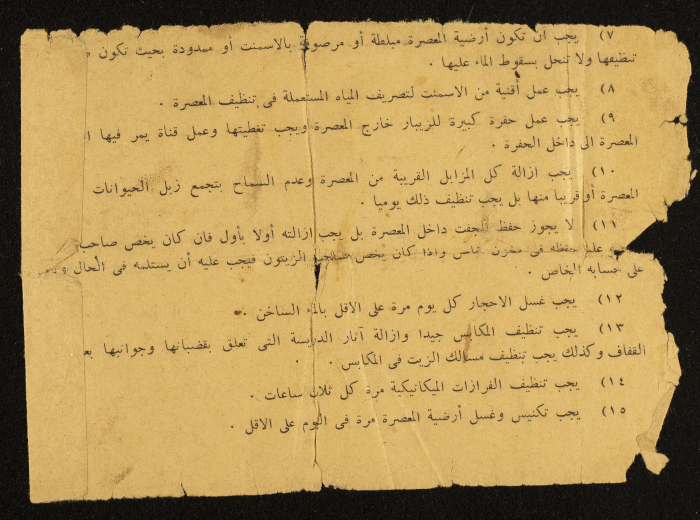 ٧) يجب ان تكون أرضية المعصرة مبلطة أو مرصوفة بالاسمنت أو ممدودة بحيث تكون
تنظيفها ولا تنحل بسقوط الماء عليها .
٨) يجب عمل أقنية من الاسمنت لتصريف المياه المستعملة فى تنظيف المعصرة .
٩) يجب عمل حفرة كبيرة للزيبار خارج المعصرة ويجب تغطيتها وعمل قناة يمر فيها
المعصرة الى داخل الحفرة .
١٠) يجب ازالة كل المزابل القريبة من المعصرة وعدم السماح بتجمع زبل الحيوانات
المعصرة أو قريبا منها بل يجب تنظيف ذلك يوميا .
١١) لا يجوز حفظ الجفت داخل المعصرة بل يجب ازالته أولا بأول فان كان يخص صاحب
حفظه فى مخزن خاص واذا كان يخص صاحب الزيتون فيجب عليه أن يستلمه فى الحال
على حسابه الخاص .
١٢) يجب غسل الاحجار كل يوم مرة على الاقل بالماء الساخن .
١٣) يجب تنظيف المكابس جيدا وازالة آثار الدريسة التى تعلق بقضبانها وجوانبها
القفاف وكذلك يجب تنظيف مسالك الزيت فى المكابس .
١٤) يجب تنظيف الفرازات الميكانيكية مرة كل ثلاث ساعات .
١٥) يجب تكنيس وغسل أرضية المعصرة مرة فى اليوم على الاقل .